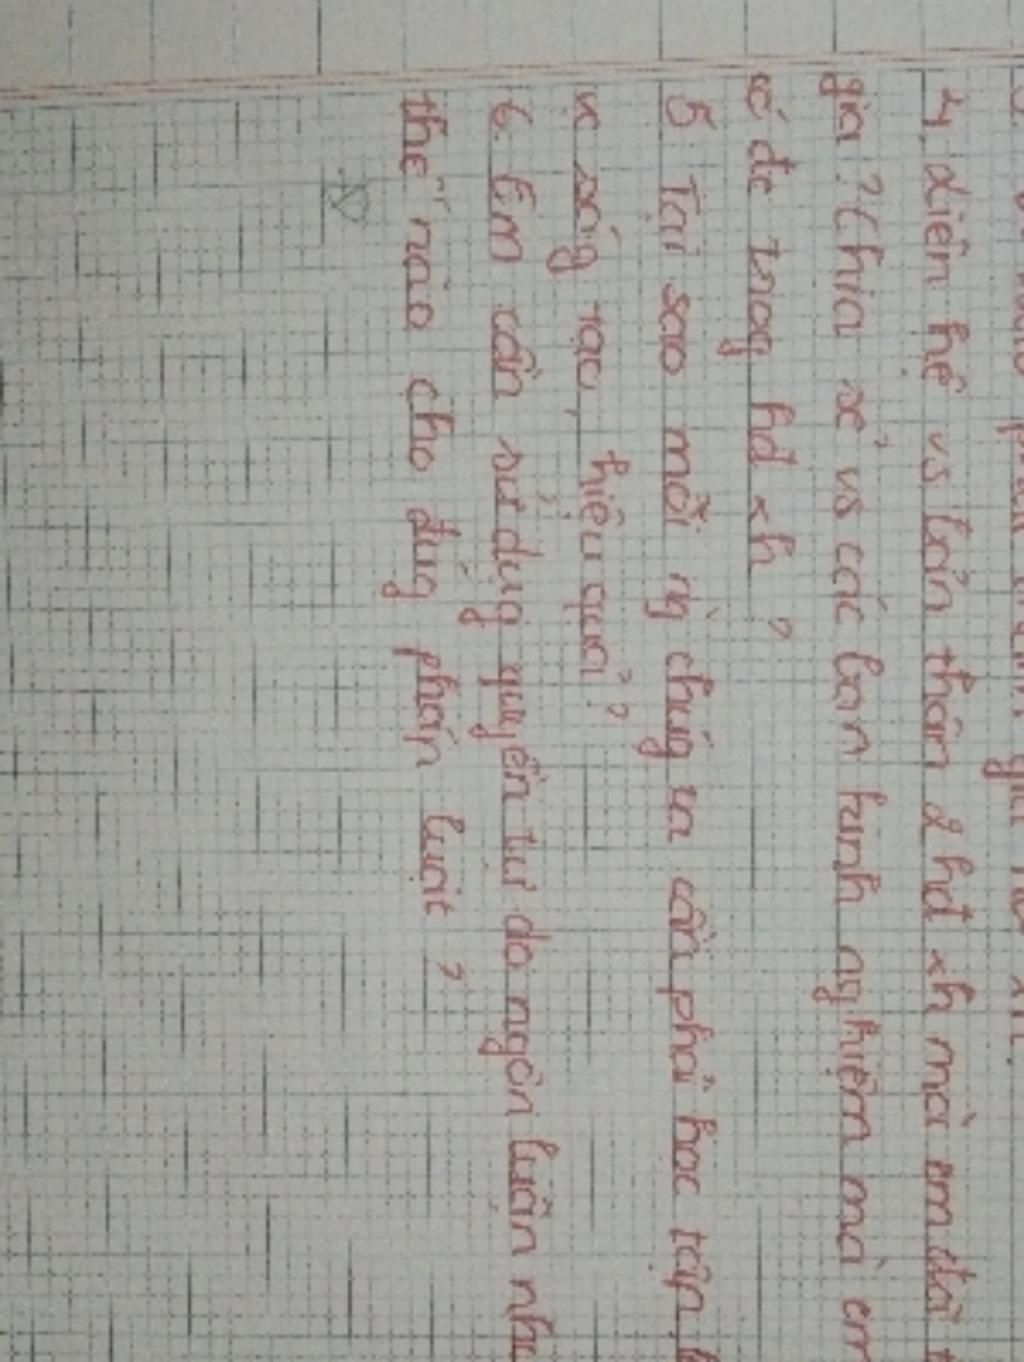 4, Liên hệ vs bản thân 2 hđ xh mà em đã t
gia? Chia sẻ vs các bạn kinh ng hiệm mà em
có đc trog hđ xh ?
5 Tại sao mỗi ng chúg ta cần phải học tập,
ság tạo, hiệu quả ?
6. Em cần sử dụg quyền tự do ngôn luận như
thế nào cho đúg pháp luật ?